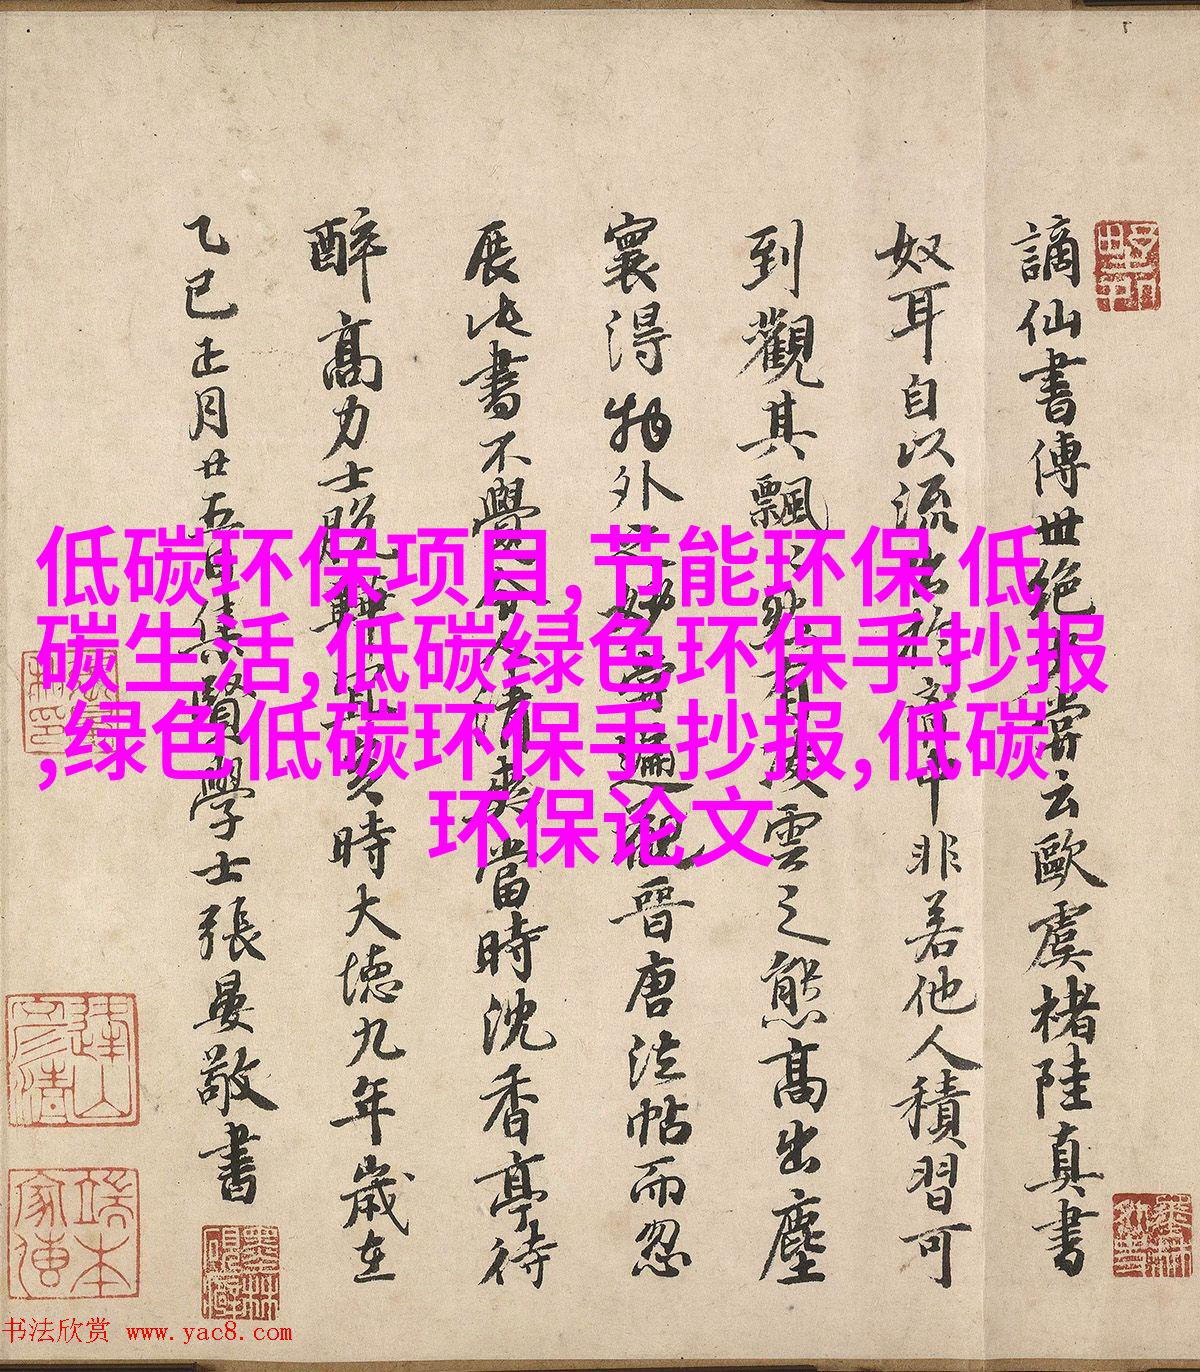 謫仙書傳世絕少嘗云歐虞褚陸真書
奴耳自以流出於胷中非若他人積習可
到觀其飄〻然有凌雲之態高出塵
寰得物外之妙嘗遍觀晉唐法帖而忽
展此書不覺令人清爽當時沈香亭待
醉高力士脫鞾宜矣時大德九年歲在
乙巳正月廿五日集賢學士張晏敬書
低碳环保项目,节能环保 低
碳生活,低碳绿色环保手抄报
,绿色低碳环保手抄报,低碳
环保论文
书法欣赏 www.yac8.com